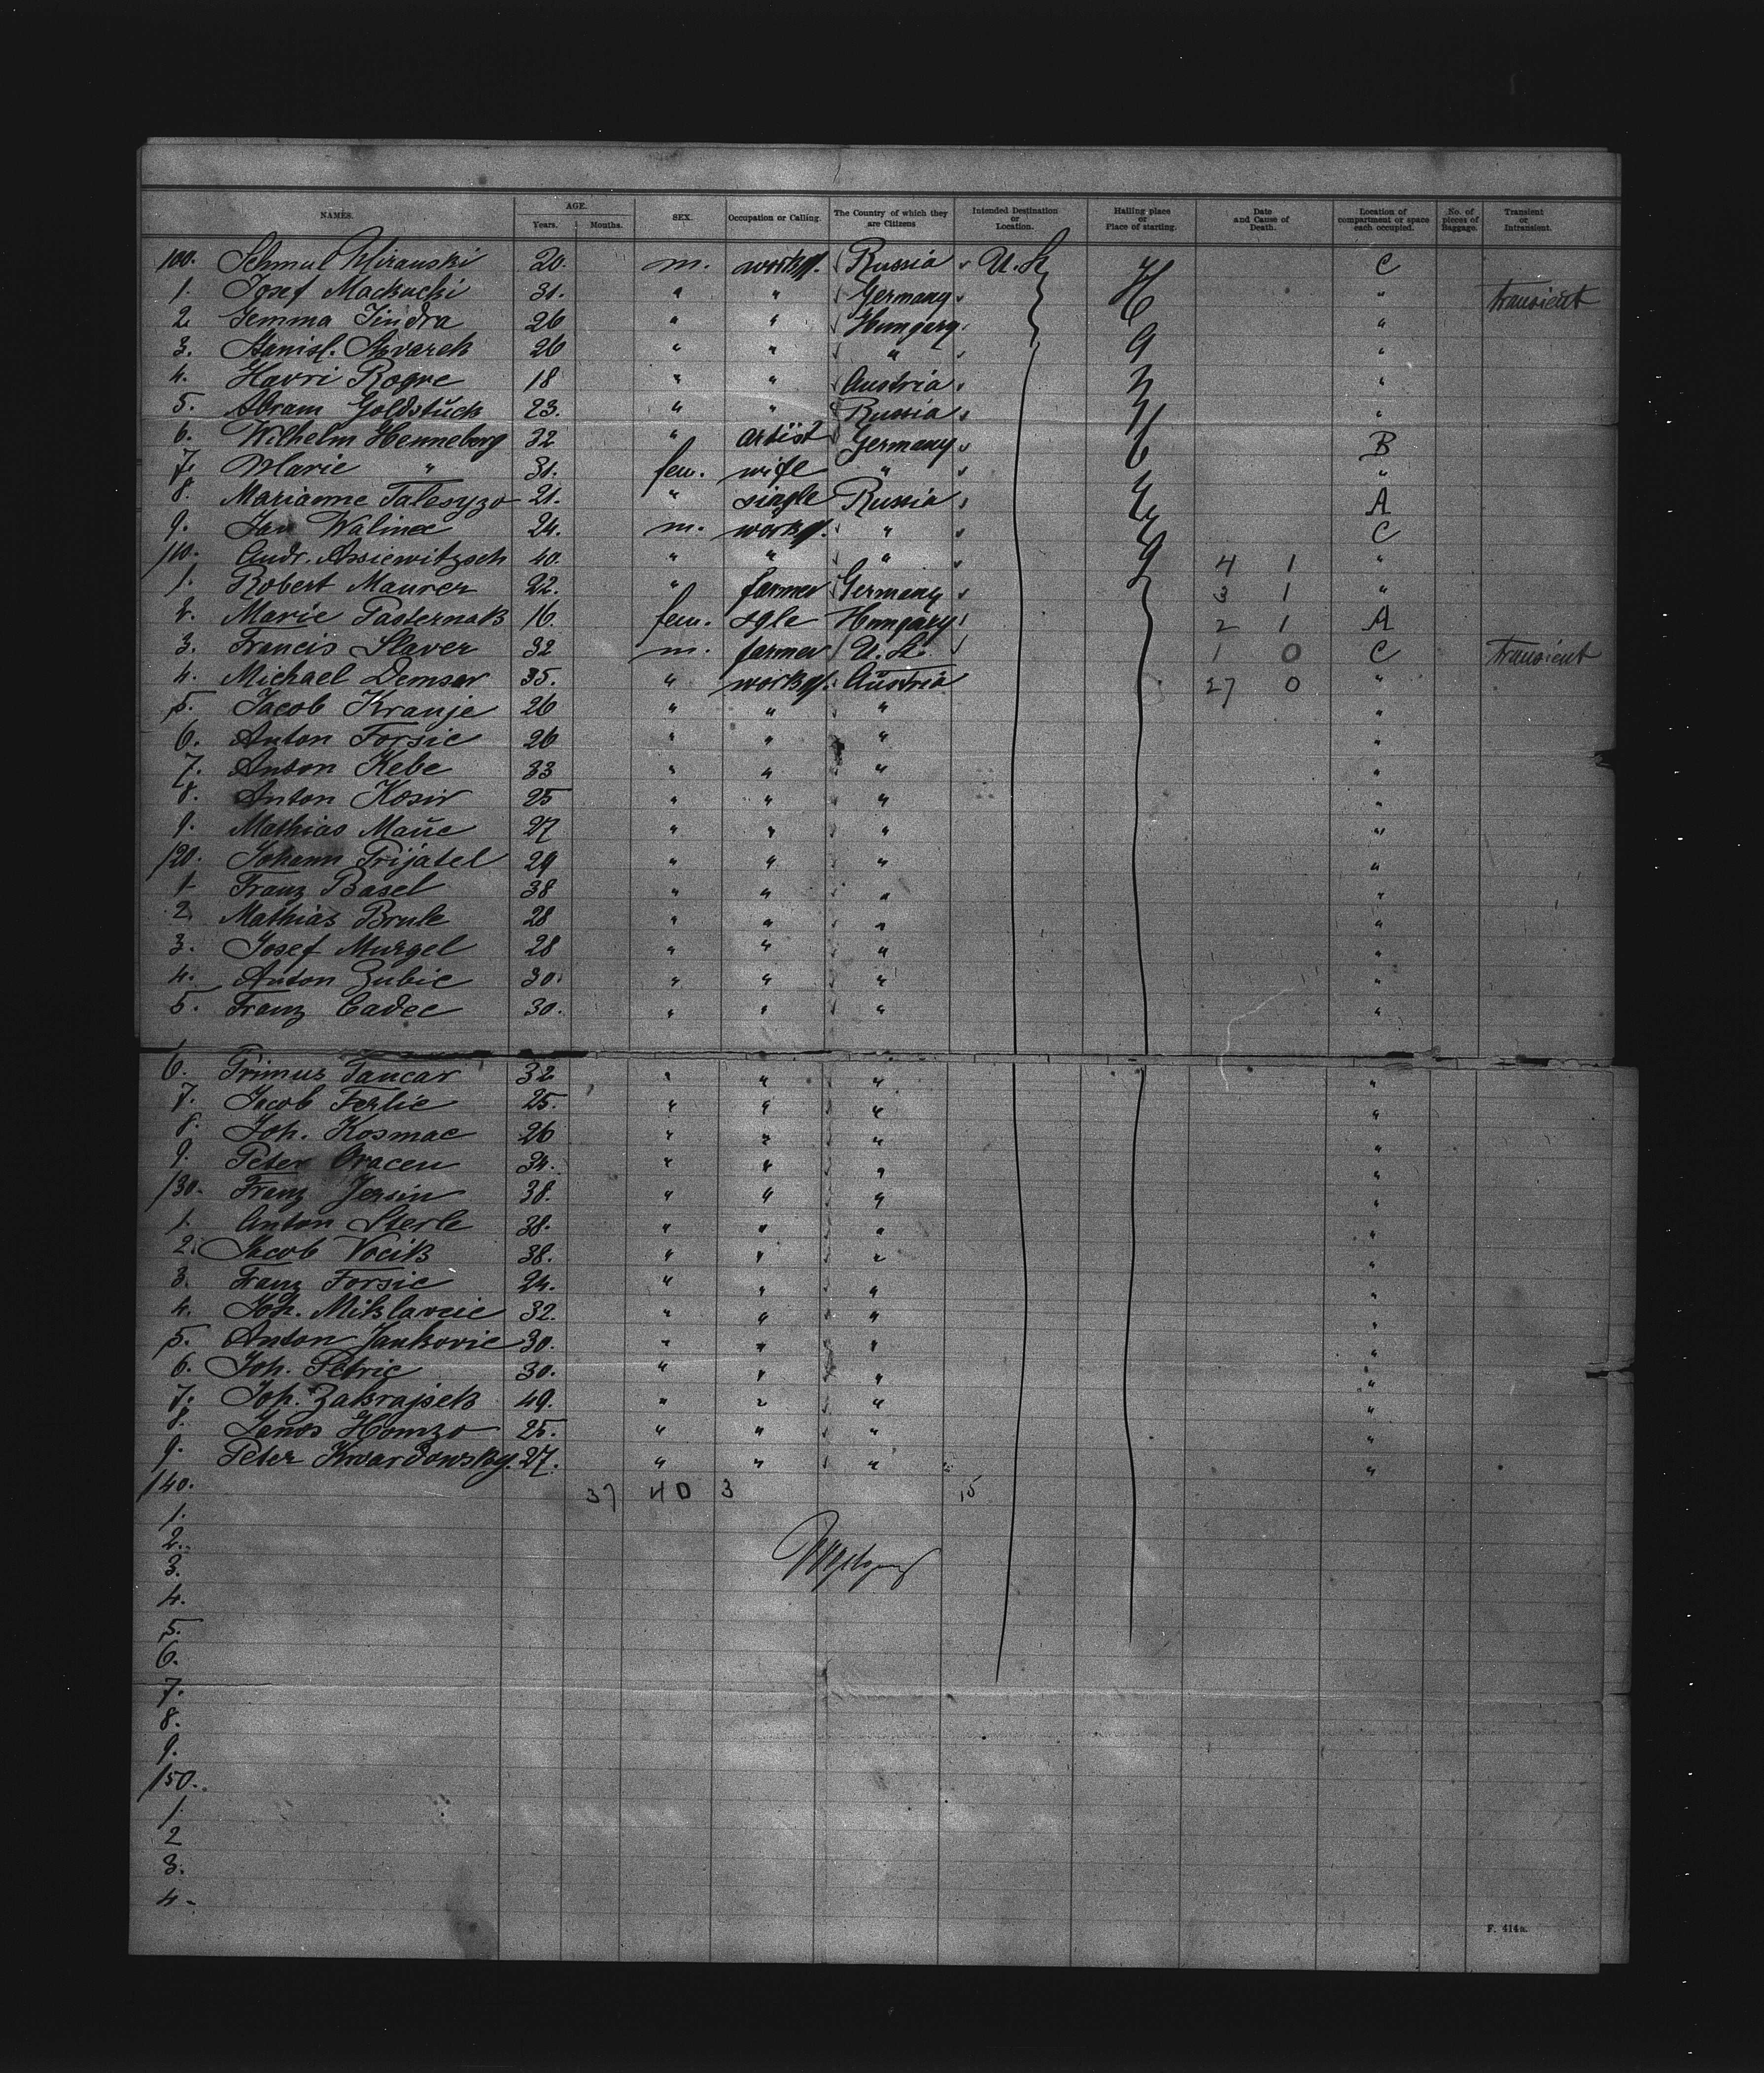 NAMES. AGE. Years. Months. SEX. Occupation or Calling. The Country of which they are Citizens Intended Destination or Location. Hailing place or Place of starting. Date and Cause of Death. Location of compartment or space each occupied. No. of pieces of Baggage. Transient or Intransient.
100. Schmul Miranski 20. m. workg. Russia U.S. C
1. Josef Mackucki 31. " " Germany " Transient
2. Jemma Jindra 26 " " Hungary "
3. Stanisl. 26 " " " "
4. Havri Rogve 18 " " Austria "
5. Abram Goldstück 23. " " Russia "
6. Wilhelm Henneberg 32 " artist Germany B
7. Marie " 31. fem. wife " "
8. Marianne Talesyzo 21. " single Russia A
9. Jan 24. m. workg. " C
110. Andr. Assiewitzsch 40. " " " 4 1 "
1. Robert Maurer 22. " farmer Germany 3 1 "
2. Marie Pasternak 16. fem. sgle Hungary 2 1 A
3. Francis Slaver 32 m. farmer U.S. 1 0 C Transient
4. Michael Demsar 35. " workg. Austria 27 0 "
5. Jacob Kranje 26 " " " "
6. Anton Forsic 26 " " " "
7. Anton Kebe 33 " " " "
8. Anton Kosir 25 " " " "
9. Mathias Maüc 27 " " " "
120. Johann Prijatel 29 " " " "
1 Franz Basel 38 " " " "
2. Mathias Brule 28 " " " "
3. Josef Murgel 28 " " " "
4. Anton Zubic 30. " " " "
5. Franz Cadec 30. " " " "
6. Primus Tancar 32 " " " "
7. Jacob Ferlic 25. " " " "
8. Joh. Kosmac 26 " " " "
9. Peter Oracen 34. " " " "
130. Franz Jersin 38. " " " "
1. Anton Sterle 38. " " " "
2. Jacob Vocik 38. " " " "
3. Franz Forsic 24. " " " "
4. Joh. Miklavcic 32. " " " "
5. Anton Jankovic 30. " " " "
6. Joh. Petric 30. " " " "
7. Joh. Zakrajsek 49. " " " "
8. Janos Homzo 25. " " " "
9. Peter Kwardowsky. 27. " " " "
140. 37 40 3 15
1.
2.
3.
4.
5.
6.
7.
8.
9.
150.
1.
2
3.
4
F. 414a.